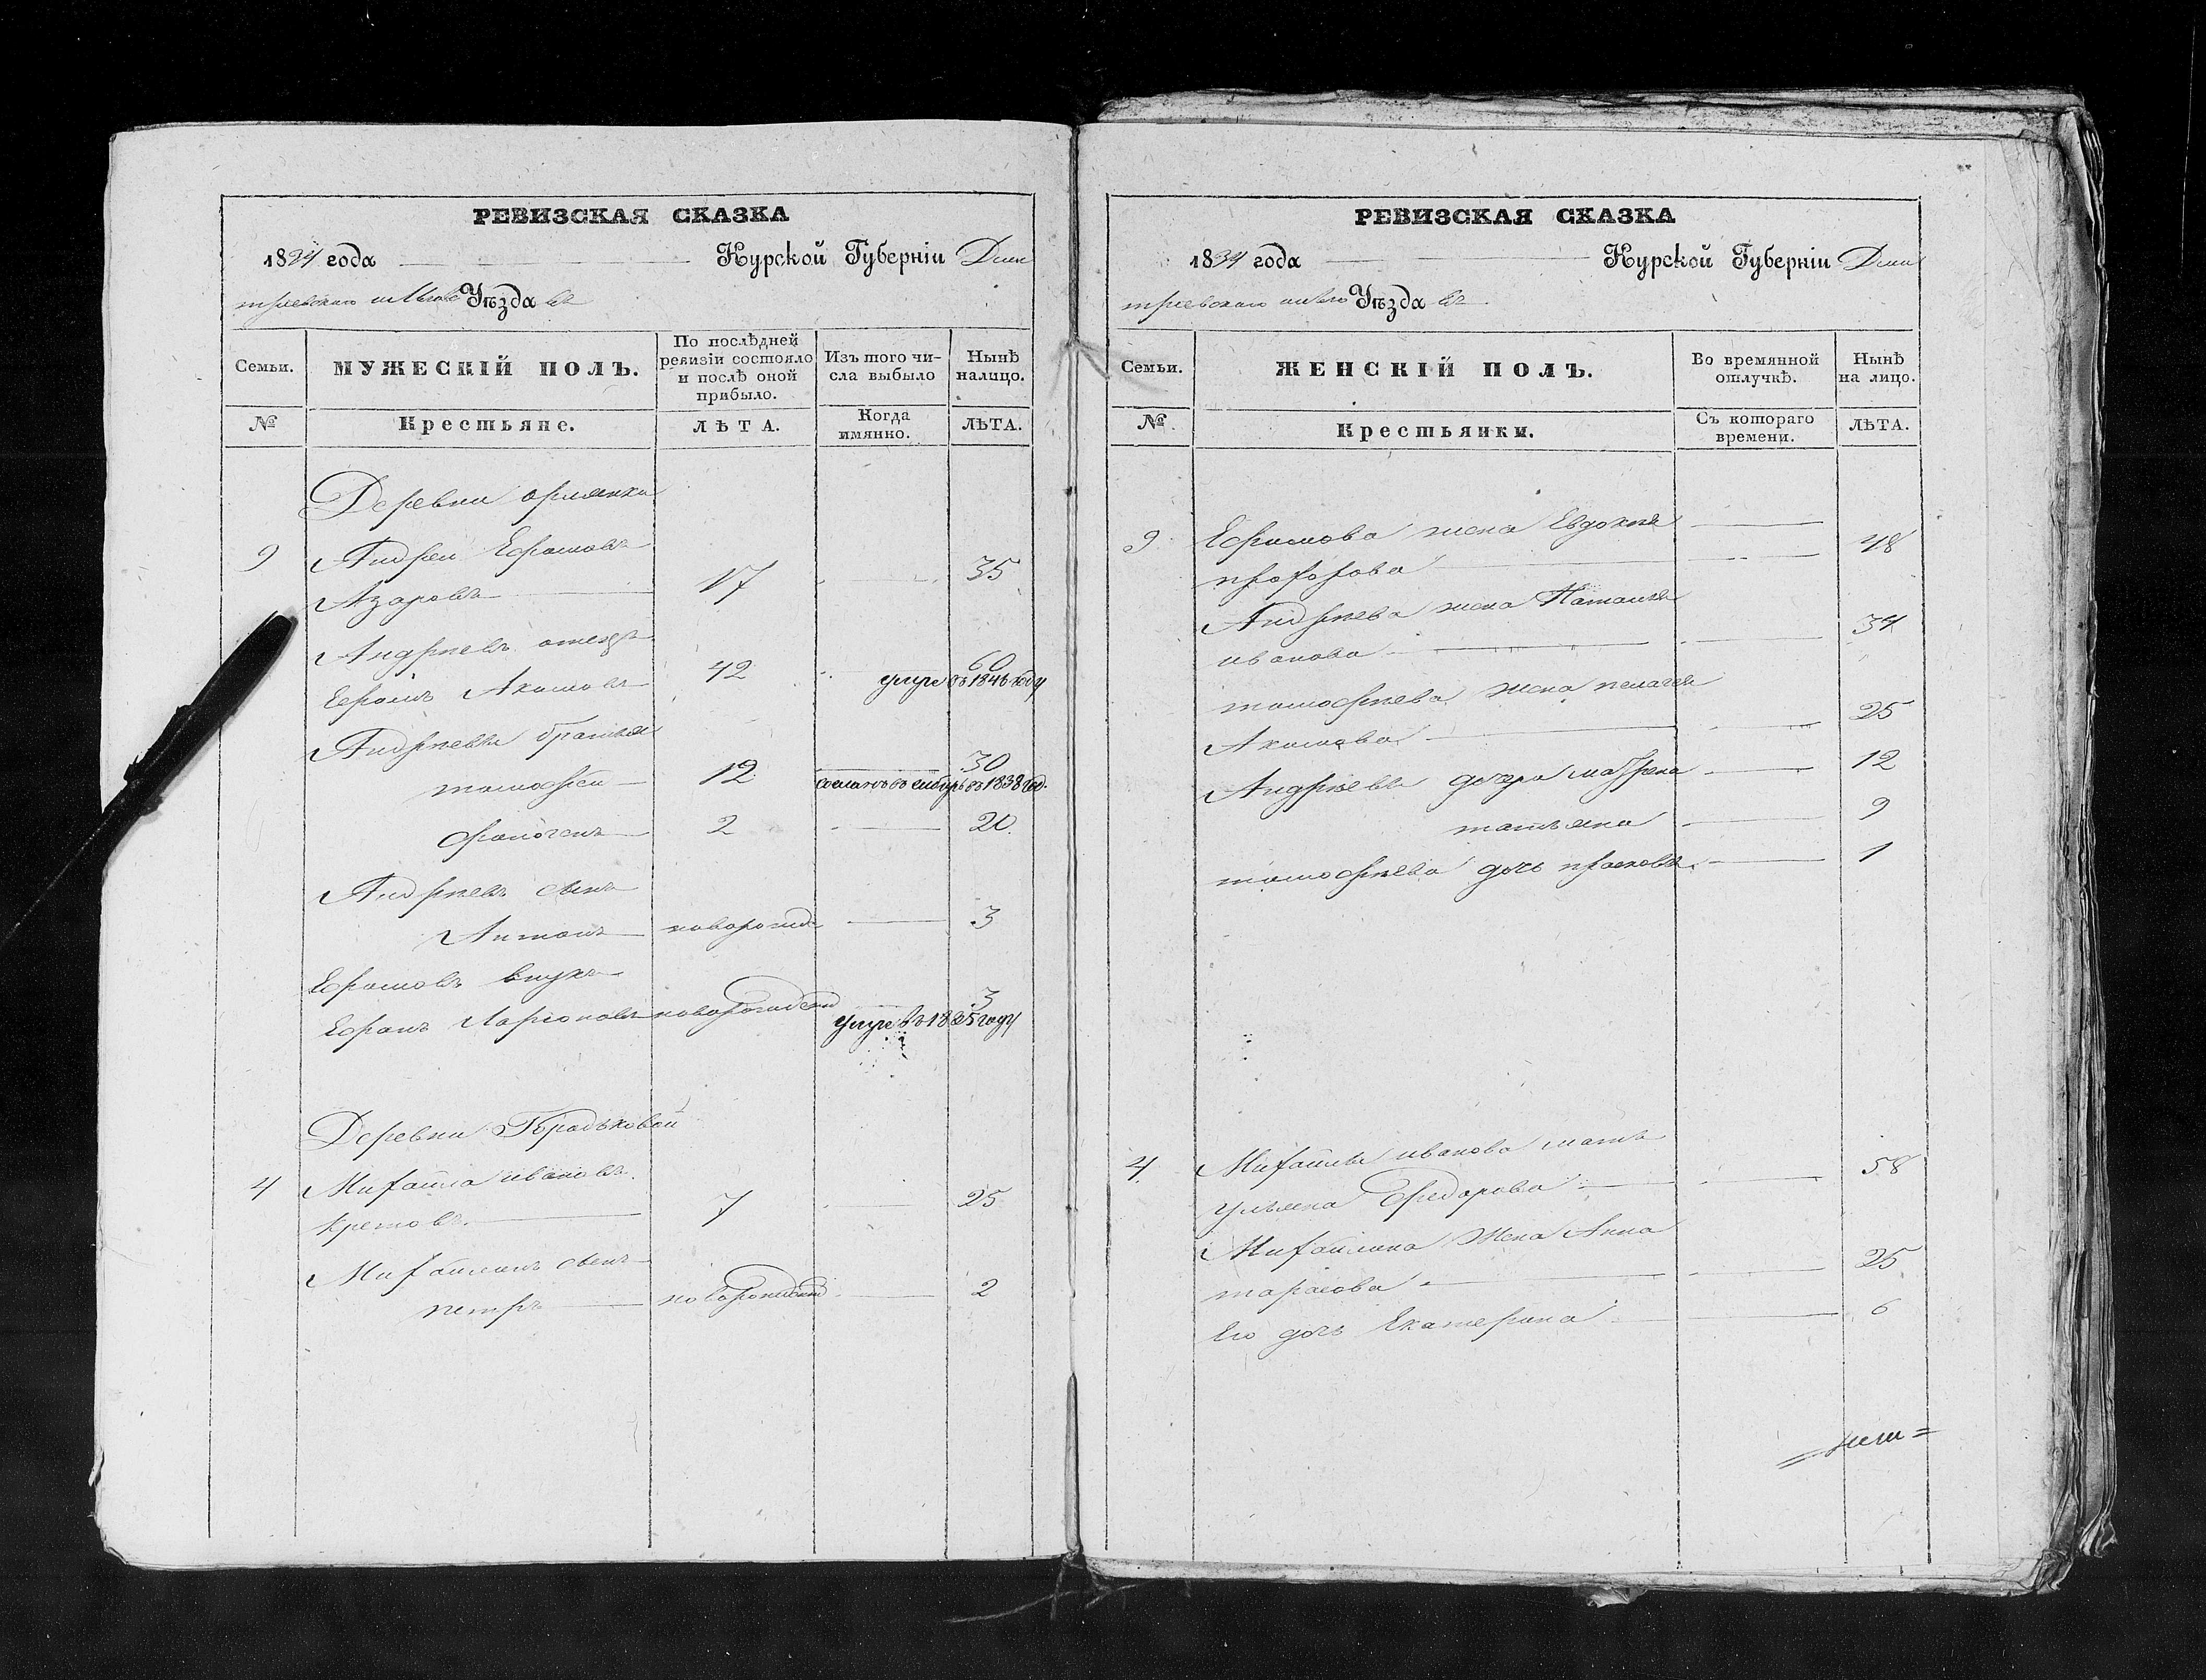 РЕВИЗСКАЯ СКАЗКА
1834 года Курской Губерніи Дми
тріевскаго на Уѣзда въ
Семьи.
МУЖЕСКІЙ ПОЛЪ.
По послѣдней
ревизіи состояло
и послѣ оной
прибыло.
Изъ того чи-
сла выбыло
Нынѣ
налицо.
№
Крестьяне.
ЛѢТА.
Когда
имянно.
ЛѢТА.
Деревни
9 Андреи Ефимовъ
Азаровъ 17 35
Андреевъ отецъ
Ефимъ Акимовъ 42 60
умре въ 184 году
Андреевы братья
тимофеи 12 30
сосланъ в сибирь въ 1838 год.
2 20.
Андреевъ сынъ
Антонъ новорожд 3
Ефимовъ внукъ
Ларионовъ новорожденн 3
умре въ 1835 году
Деревни
4 Михаила ивановъ
Кретовъ. 7 25
Михаилинъ сынъ
петръ новорожденн 2
РЕВИЗСКАЯ СКАЗКА
1834 года Курской Губерніи Дми
тріевскаго на Уѣзда въ
Семьи.
ЖЕНСКІЙ ПОЛЪ.
Во времянной
отлучкѣ.
Нынѣ
на лицо.
№.
Крестьянки.
Съ котораго
времени.
ЛѢТА.
9 Ефимова жена Евдокия
прохорова 48
Андреева жена Наталия
иванова 34
тимофеева жена пелагея
Акимова 25
Андреевы дочери матрена 12
татьяна 9
тимофеева дочь прасковья 1
4. Михаилы иванова мать
ульяна Федорова 58
Михаилина жена Анна
тарасова 25
Его дочь Екатерина 6